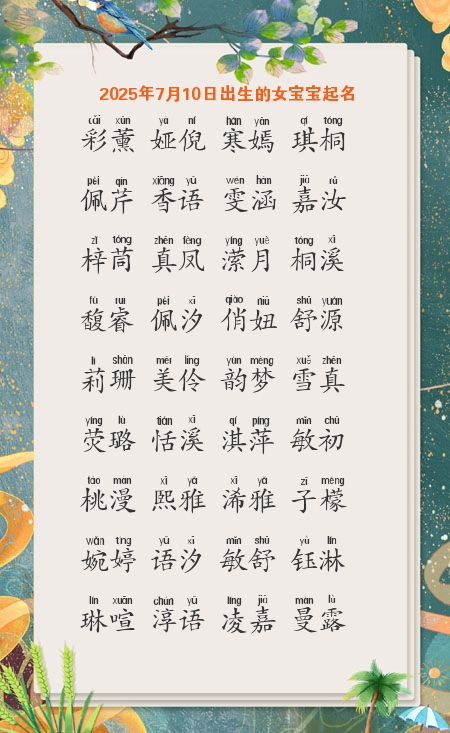 2025年7月10日出生的女宝宝起名
cǎi xūn yà ní hán yān qí tóng
彩薰 娅倪 寒嫣 琪桐
pèi qín xiāng yǔ wén hán jiā rǔ
佩芹 香语 雯涵 嘉汝
zǐ tóng zhēn fèng yíng yuè tóng xī
梓茼 真凤 潆月 桐溪
fù ruì pèi xī qiào niū shū yuán
馥睿 佩汐 俏妞 舒源
lì shān měi líng yùn mèng xuě zhēn
莉珊 美伶 韵梦 雪真
yíng lù tián xī qí píng mǐn chū
荧璐 恬溪 淇萍 敏初
táo màn xī yǎ xī yǎ zǐ méng
桃漫 熙雅 浠雅 子檬
wǎn tíng yǔ xī mǐn shū yù lín
婉婷 语汐 敏舒 钰淋
lín xuān chún yǔ líng jiā màn lù
琳喧 淳语 凌嘉 曼露